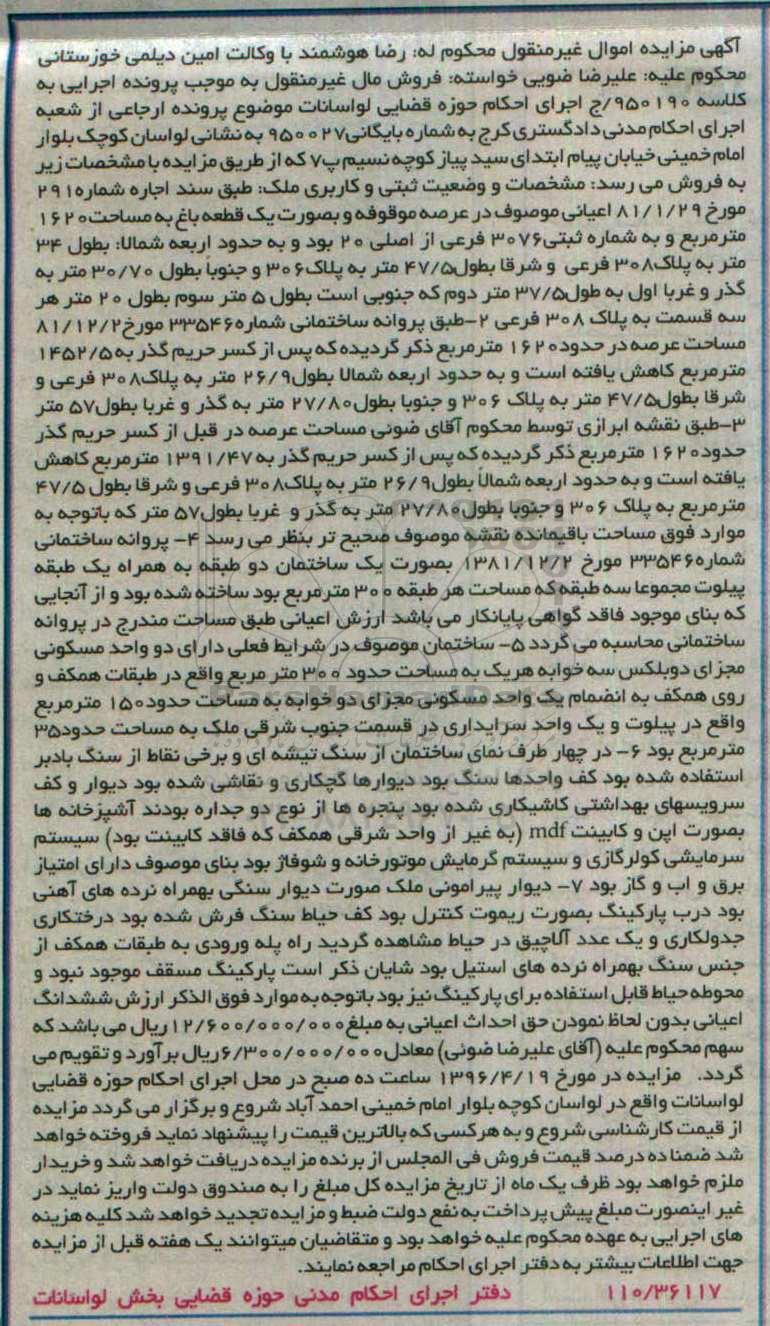 آگهی مزایده اموال غیرمنقول محکوم له: رضا هوشمند با وکالت امین دیلمی خوزستانی
محکوم علیه: علیرضا ضویی خواسته: فروش مال غیرمنقول به موجب پرونده اجرایی به
کلاسه ۹۵۰۱۹۰/ج اجرای احکام حوزه قضایی لواسانات موضوع پرونده ارجاعی از شعبه
اجرای احکام مدنی دادگستری کرج به شماره بایگانی۹۵۰۰۲۷ به نشانی لواسان کوچک بلوار
امام خمینی خیابان پیام ابتدای سید پیاز کوچه نسیم پ۷ که از طریق مزایده با مشخصات زیر
به فروش می رسد: مشخصات و وضعیت ثبتی و کاربری ملک: طبق سند اجاره شماره۲۹۱
مورخ ۸۱/۱/۲۹ اعیانی موصوف در عرصه موقوفه و بصورت یک قطعه باغ به مساحت۱۶۲۰
مترمربع و به شماره ثبتی۳۰۷۶ فرعی از اصلی ۲۰ بود و به حدود اربعه شمالا: بطول ۳۴
متر به پلاک۳۰۸ فرعی و شرقا بطول۴۷/۵ متر به پلاک۳۰۶ و جنوباً بطول ۳۰/۷۰ متر به
گذر و غربا اول به طول۳۷/۵ متر دوم که جنوبی است بطول ۵ متر سوم بطول ۲۰ متر هر
سه قسمت به پلاک ۳۰۸ فرعی ۲-طبق پروانه ساختمانی شماره۳۳۵۴۶ مورخ۸۱/۱۲/۲
مساحت عرصه در حدود۱۶۲۰ مترمربع ذکر گردیده که پس از کسر حریم گذر به۱۴۵۲/۵
مترمربع کاهش یافته است و به حدود اربعه شمالا بطول۲۶/۹ متر به پلاک۳۰۸ فرعی و
شرقا بطول۴۷/۵ متر به پلاک ۳۰۶ و جنوبا بطول۲۷/۸۰ متر به گذر و غربا بطول۵۷ متر
۳-طبق نقشه ابرازی توسط محکوم آقای ضوئی مساحت عرصه در قبل از کسر حریم گذر
حدود۱۶۲۰ مترمربع ذکر گردیده که پس از کسر حریم گذر به۱۳۹۱/۴۷ مترمربع کاهش
یافته است و به حدود اربعه شمالاً بطول۲۶/۹ متر به پلاک۳۰۸ فرعی و شرقا بطول ۴۷/۵
مترمربع به پلاک ۳۰۶ و جنوبا بطول۲۷/۸۰ متر به گذر و غربا بطول۵۷ متر که باتوجه به
موارد فوق مساحت باقیمانده نقشه موصوف صحیح تر بنظر می رسد ۴- پروانه ساختمانی
شماره۳۳۵۴۶ مورخ ۱۳۸۱/۱۲/۲ بصورت یک ساختمان دو طبقه به همراه یک طبقه
پیلوت مجموعا سه طبقه که مساحت هر طبقه ۳۰۰ مترمربع بود ساخته شده بود و از آنجایی
که بنای موجود فاقد گواهی پایانکار می باشد ارزش اعیانی طبق مساحت مندرج در پروانه
ساختمانی محاسبه می گردد ۵- ساختمان موصوف در شرایط فعلی دارای دو واحد مسکونی
مجزای دوبلکس سه خوابه هریک به مساحت حدود ۳۰۰ متر مربع واقع در طبقات همکف و
روی همکف به انضمام یک واحد مسکونی مجزای دو خوابه به مساحت حدود۱۵۰ مترمربع
واقع در پیلوت و یک واحد سرایداری در قسمت جنوب شرقی ملک به مساحت حدود۳۵
مترمربع بود ۶- در چهار طرف نمای ساختمان از سنگ تیشه ای و برخی نقاط از سنگ بادبر
استفاده شده بود کف واحدها سنگ بود دیوارها گچکاری و نقاشی شده بود دیوار و کف
سرویسهای بهداشتی کاشیکاری شده بود پنجره ها از نوع دو جداره بودند آشپزخانه ها
بصورت اپن و کابینت mdf (به غیر از واحد شرقی همکف که فاقد کابینت بود) سیستم
سرمایشی کولرگازی و سیستم گرمایش موتورخانه و شوفاژ بود بنای موصوف دارای امتیاز
برق و اب و گاز بود ۷- دیوار پیرامونی ملک صورت دیوار سنگی بهمراه نرده های آهنی
بود درب پارکینگ بصورت ریموت کنترل بود کف حیاط سنگ فرش شده بود درختکاری
جدولکاری و یک عدد آلاچیق در حیاط مشاهده گردید راه پله ورودی به طبقات همکف از
جنس سنگ بهمراه نرده های استیل بود شایان ذکر است پارکینگ مسقف موجود نبود و
محوطه حیاط قابل استفاده برای پارکینگ نیز بود باتوجه به موارد فوق الذکر ارزش ششدانگ
اعیانی بدون لحاظ نمودن حق احداث اعیانی به مبلغ۱۲/۶۰۰/۰۰۰/۰۰۰ریال می باشد که
سهم محکوم علیه (آقای علیرضا ضوئی) معادل۶/۳۰۰/۰۰۰/۰۰۰ریال برآورد و تقویم می
گردد. مزایده در مورخ ۱۳۹۶/۴/۱۹ ساعت ده صبح در محل اجرای احکام حوزه قضایی
لواسانات واقع در لواسان کوچه بلوار امام خمینی احمد آباد شروع و برگزار می گردد مزایده
از قیمت کارشناسی شروع و به هرکسی که بالاترین قیمت را پیشنهاد نماید فروخته خواهد
شد ضمنا ده درصد قیمت فروش فی المجلس از برنده مزایده دریافت خواهد شد و خریدار
ملزم خواهد بود ظرف یک ماه از تاریخ مزایده کل مبلغ را به صندوق دولت واریز نماید در
غیر اینصورت مبلغ پیش پرداخت به نفع دولت ضبط و مزایده تجدید خواهد شد کلیه هزینه
های اجرایی به عهده محکوم علیه خواهد بود و متقاضیان میتوانند یک هفته قبل از مزایده
جهت اطلاعات بیشتر به دفتر اجرای احکام مراجعه نمایند.
۱۱۰/۳۶۱۱۷ دفتر اجرای احکام مدنی حوزه قضایی بخش لواسانات